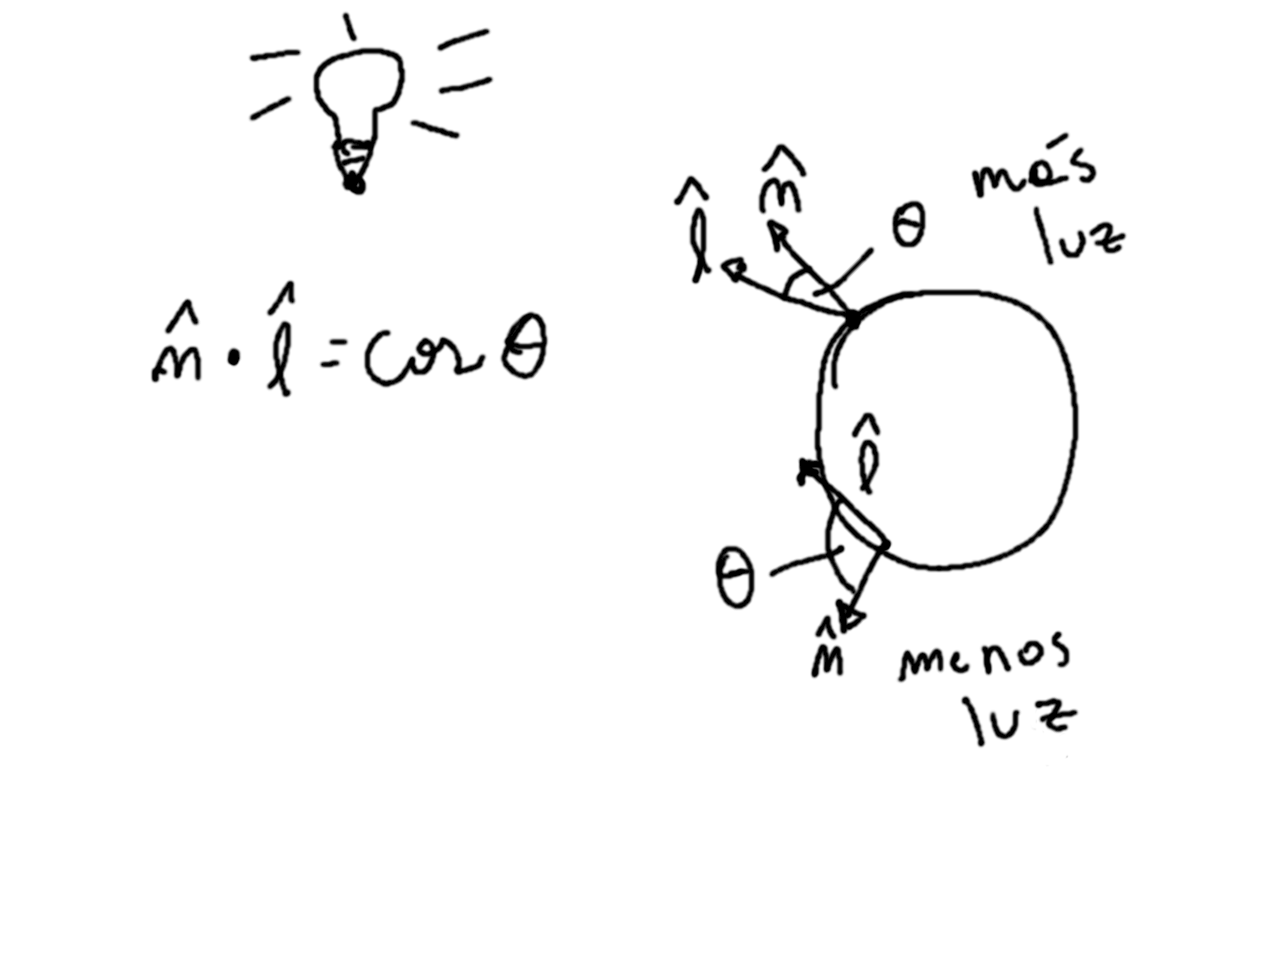 n̂ · l̂ = cos θ
l̂ n̂ θ
más
luz
l̂
θ
n̂
menos
luz